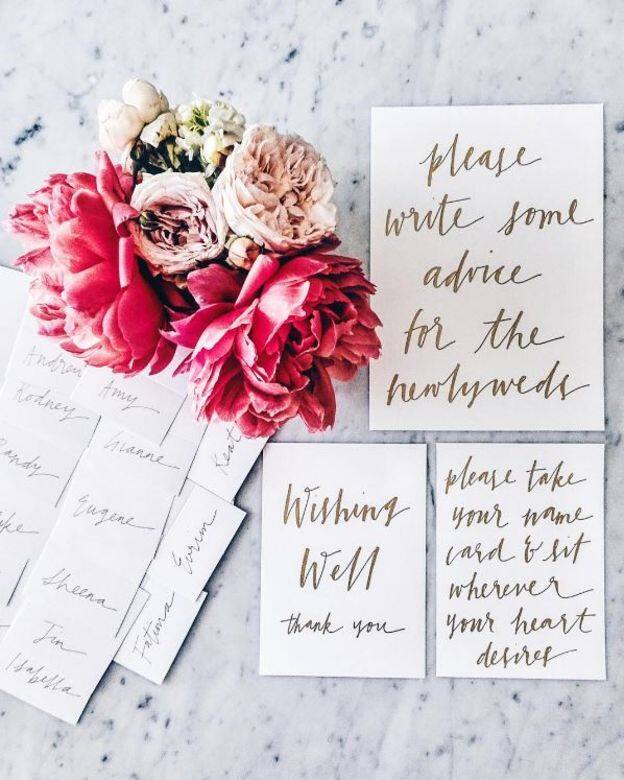 please
write some
advice
for the
newlyweds
Andrew
Rodney
Amy
Gianne
Eugene
Sheena
Jin
Isabella
Evrim
Fatima
Wishing
Well
thank you
please take
your name
card & sit
wherever
your heart
desires